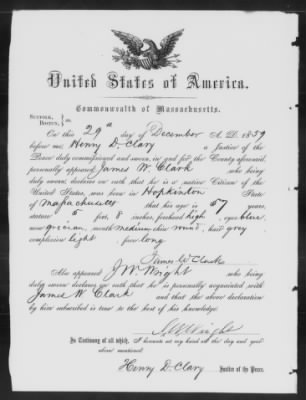 United States of America.
Commonwealth of Massachusetts.
SUFFOLK,
BOSTON, } ss.
On this 29th day of December A. D. 1859
before me, Henry D. Clary a Justice of the
Peace duly commissioned and sworn, in and for the County aforesaid,
personally appeared James W. Clark who being
duly sworn, declares on oath that he is a native Citizen of the
United States, was born in Hopkinton State
of Massachusetts that his age is 57 years,
stature 5 feet, 8 inches, forehead high eyes blue
nose grecian, mouth medium chin round, hair grey
complexion light face long
James W. Clark
Also appeared J. W. Wright who being
duly sworn declares on oath that he is personally acquainted with
James W. Clark and that the above declaration
by him subscribed is true to the best of his knowledge.
J. W. Wright
In Testimony of all which, I hereunto set my hand all the day and year
above mentioned.
Henry D. Clary Justice of the Peace.